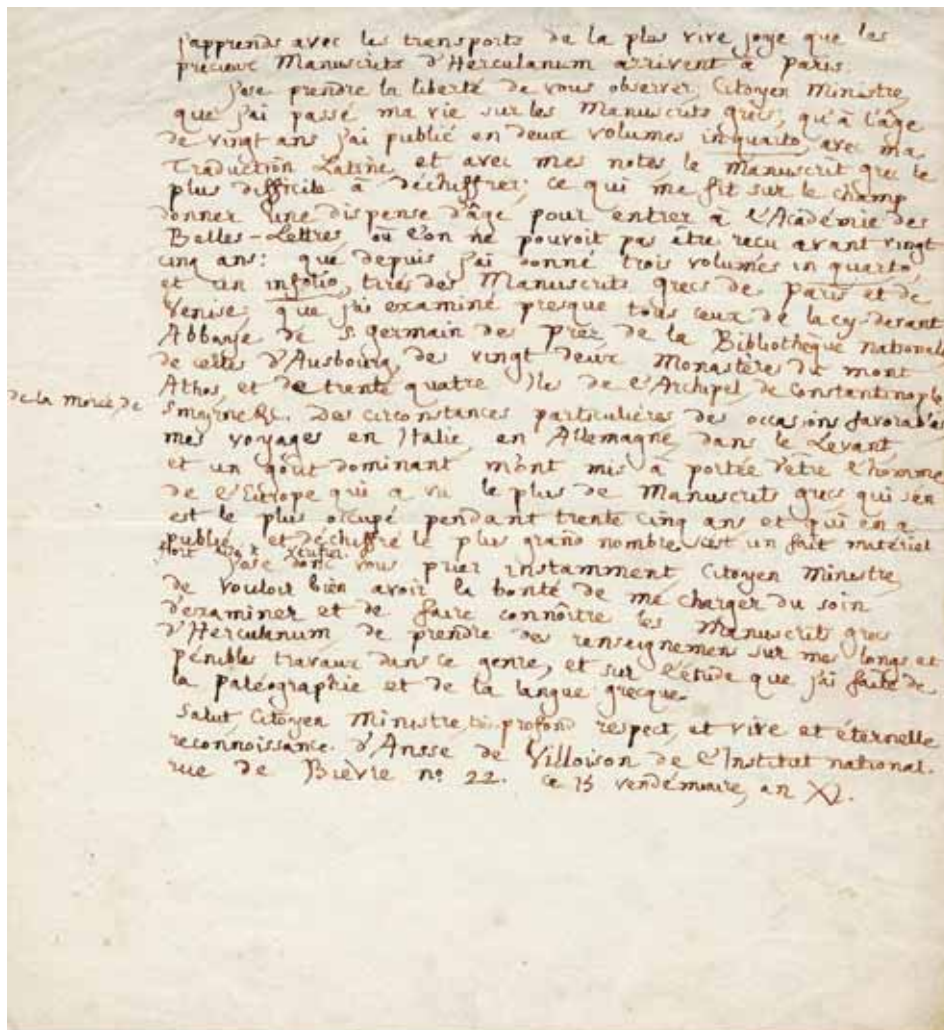 j'apprends avec les transports de la plus vive joye que les
précieux Manuscrits d'Herculanum arrivent à Paris.
j'ose prendre la liberté de vous observer, Citoyen Ministre,
que j'ai passé ma vie sur les Manuscrits grecs, qu'à l'âge
de vingt ans j'ai publié en deux volumes inquarto, avec ma
Traduction Latine, et avec mes notes, le Manuscrit grec le
plus difficile à déchiffrer; ce qui me fit sur le champ
donner une dispense d'âge pour entrer à l'Académie des
Belles-Lettres, où l'on ne pouvoit pas être reçu avant vingt
cinq ans: que depuis j'ai donné trois volumes in quarto,
et un infolio, tirés des Manuscrits grecs de Paris et de
Venise; que j'ai examiné presque tous ceux de la cy-devant
Abbaye de S. Germain des Prez, de la Bibliothèque nationale,
de celles d'Ausbourg, de vingt deux Monastères du mont
Athos, et de trente quatre Iles de l'Archipel, de Constantinople,
de la Morée, de
Smyrne &c. Des circonstances particulières des occasions favorables
mes voyages en Italie, en Allemagne, dans le Levant,
et un goût dominant m'ont mis à portée d'être l'homme
de l'Europe qui a vu le plus de Manuscrits grecs qui s'en
est le plus occupé pendant trente cinq ans et qui en a
publié et déchiffré le plus grand nombre. c'est un fait matériel
j'ose donc vous prier instamment, Citoyen Ministre,
de vouloir bien avoir la bonté de me charger du soin
d'examiner et de faire connoître les Manuscrits grecs
d'Herculanum, de prendre des renseignemens sur mes longs et
pénibles travaux dans ce genre, et sur l'étude que j'ai faite de
la paléographie et de la langue grecque.
Salut Citoyen Ministre, très profond respect, et vive et éternelle
reconnoissance. d'Ansse de Villoison de l'Institut national.
rue de Bièvre n.º 22. ce 15 vendémiaire, an XI.